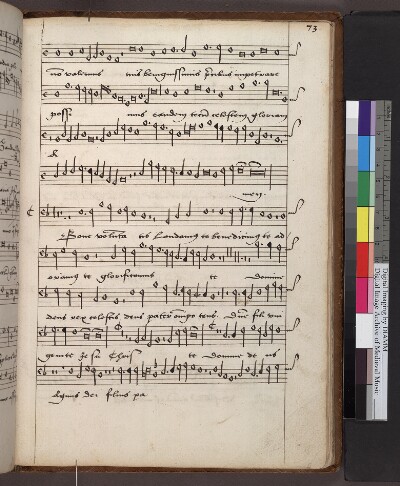 73
no valemus tuis benignissimis precibus impetrare
poss imus eandem tecum celestem gloriam
&
men
Bone voluntatis Laudamus te benedicimus te ad
oramus te glorificamus te Domine
deus rex celestis deus pater omnipotens. Dne fili uni
genite Jesu Christe Domine de us
Agnus dei filius pa
Digital Imaging by DIAMM
Digital Image Archive of Medieval Music